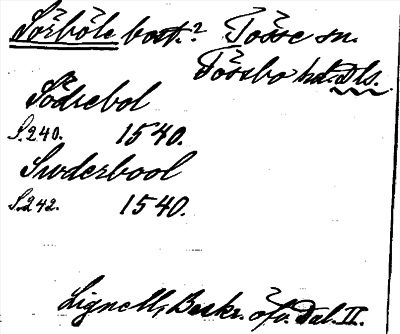 Sörböle bost.? Tösse sn.
Tössbo hd. Dls.
Södrebol
S. 240. 1540.
Suderbool
S. 242. 1540.
Lignell, Beskr. öfv. Dal. II.